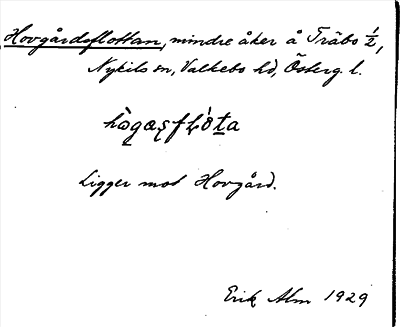 Hovgårdsflottan, mindre åker å Träbo 1/2,
Nykils sn, Valkebo hd, Österg. l.
Ligger mot Hovgård.
Erik Alm 1929